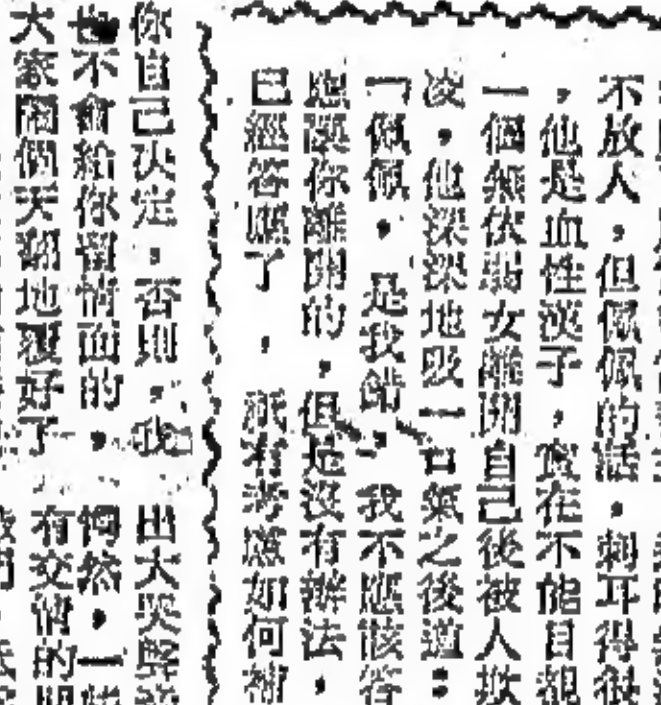 不放人，但佩佩的話，刺耳得很
，他是血性漢子，實在不能目覩
一個無依弱女離開自己後被人欺
凌，他深深地吸一口氣之後道：
「佩佩，是我錯，我不應該答
應讓你離開的，但是沒有辦法，
已經答應了，祇有考慮如何補
你自己决定，否則，我
也不會給你留情面的，
大家鬧個天翻地覆好了
出大哭聲
惘然，一
有交情的